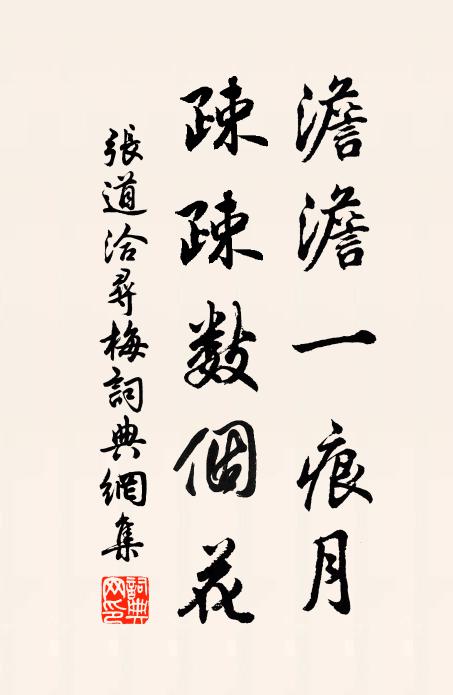 澹澹一痕月
疎疎數個花
張道洽尋梅詞典網集
詞典網印